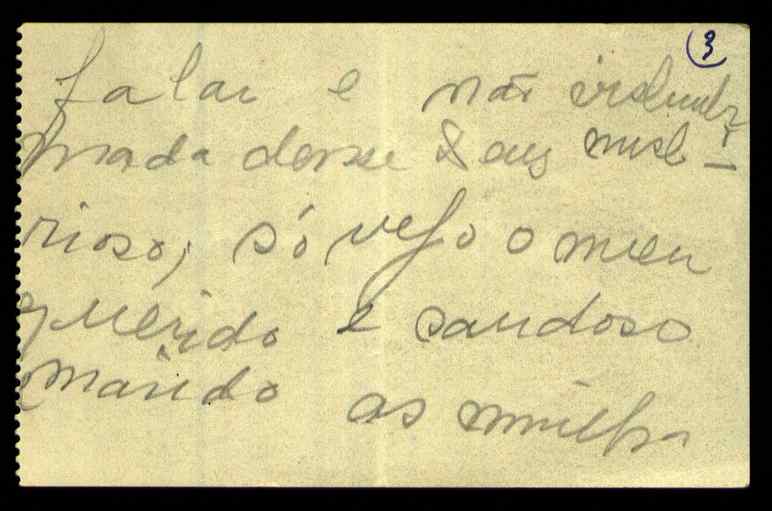 3
falar e não
nada desse Deus mist-
rioso, só vejo o meu
querido e saudoso
marido as